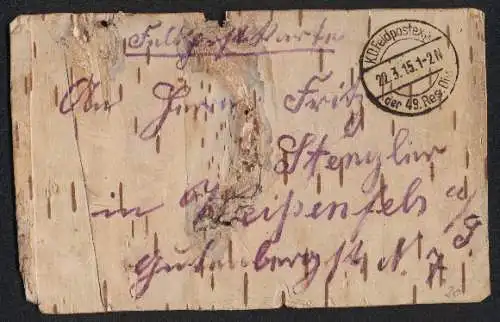 Feldpostkarte
K.D. Feldpostexp.
22.3.15.1-2N
der 49. Res. Div.
An Herrn Fritz
Stenzler
in Weißenfels a/S.
Gutenbergst. N.